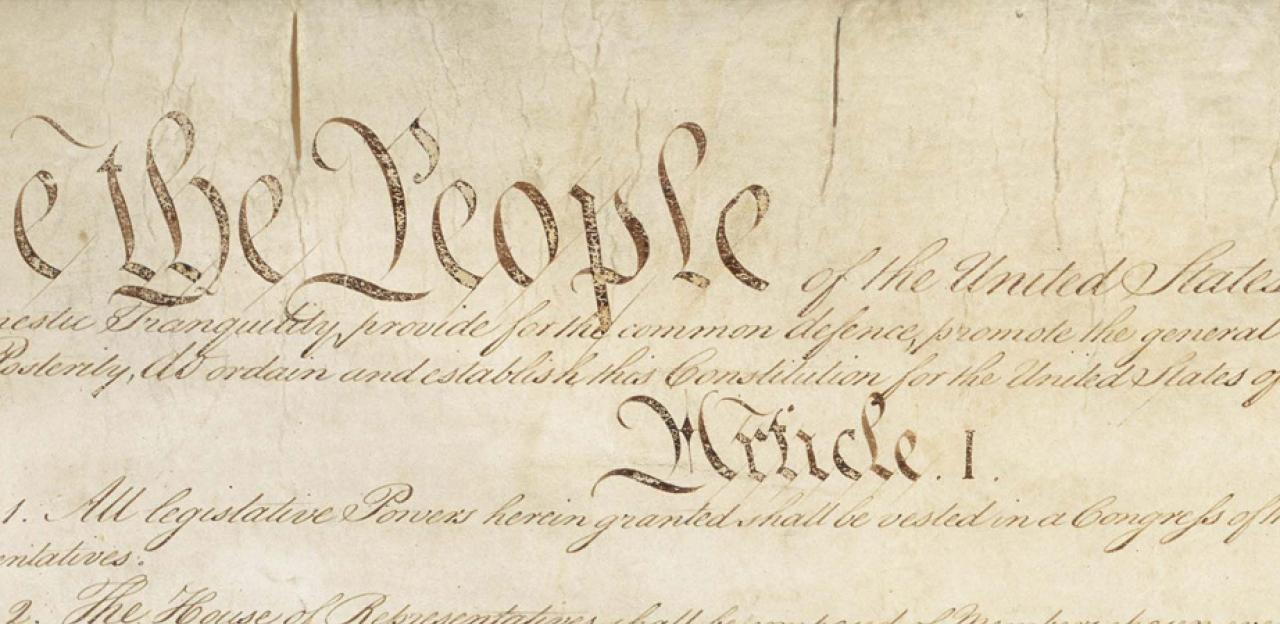 e the People of the United States
nestic Tranquility, provide for the common defence, promote the general
Posterity, do ordain and establish this Constitution for the United States of
Article. I.
1. All legislative Powers herein granted shall be vested in a Congreſs of th
entatives.
2. The House of Representatives shall be composed of Members chosen eve